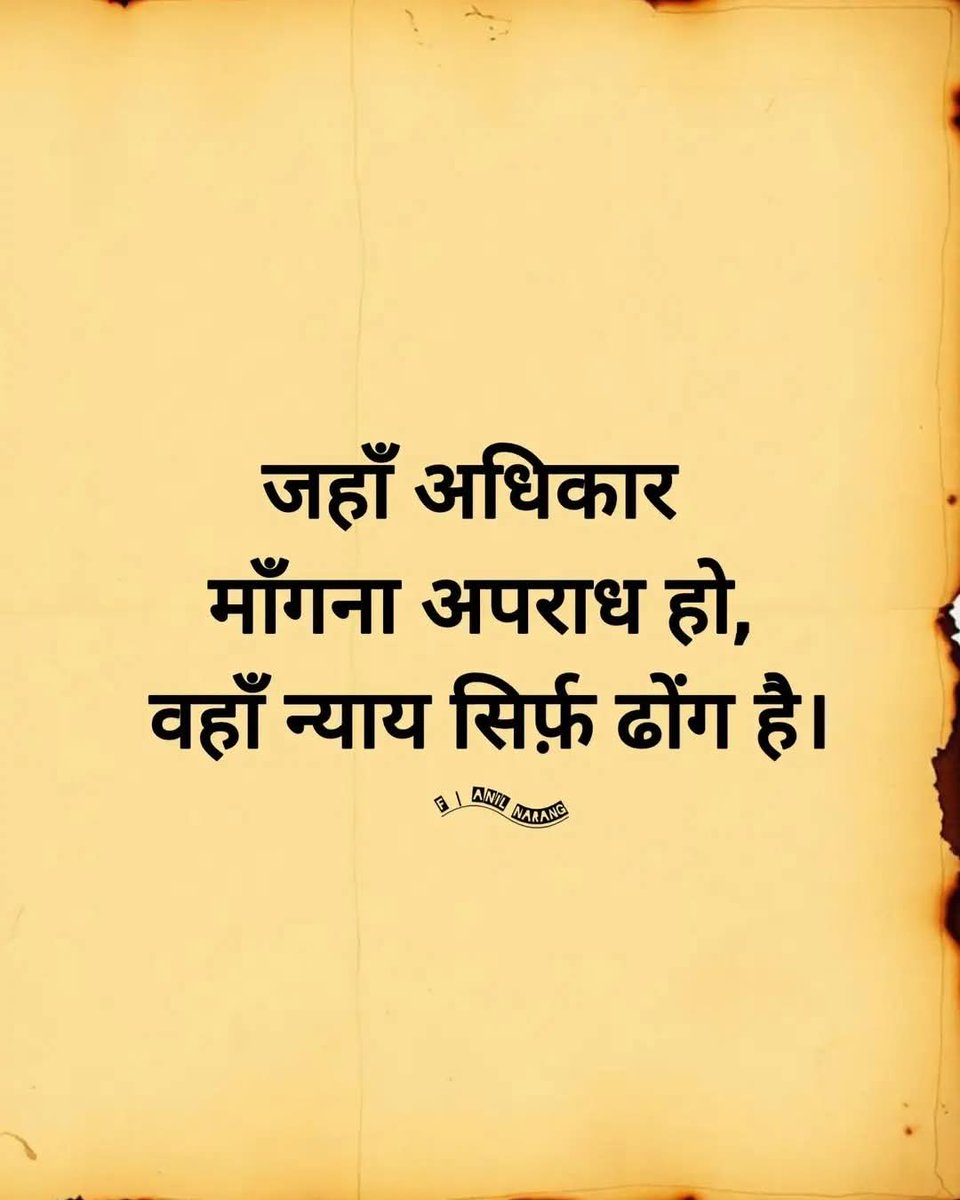 जहाँ अधिकार
माँगना अपराध हो,
वहाँ न्याय सिर्फ़ ढोंग है।
F | ANIL NARANG